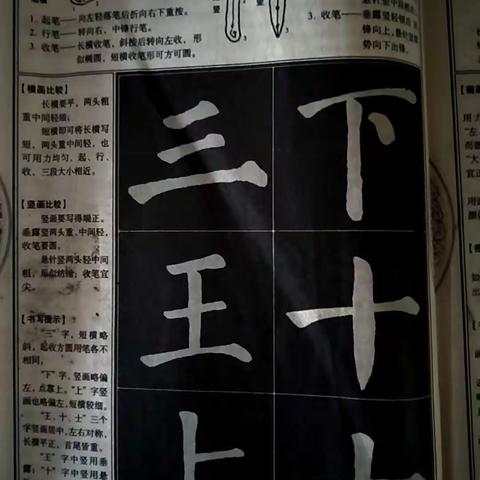 1. 起笔——向左轻落笔后折向右下重按。
2. 行笔——转向右,中锋行笔。
3. 收笔——长横收笔,斜按后转向左收,形
似椭圆,短横收笔形可方可圆。
3. 收笔——
锋向上,
势向下出锋。
【横画比较】
长横要平,两头粗
重中间轻细;
短横即可将长横写
短,两头重中间轻,也
可用力均匀、起、行、
收、三段大小相近。
【竖画比较】
竖画要写得端正。
垂露竖两头重、中间轻,
收笔要圆。
悬针竖两头轻中间
粗,形似纺锤;收笔宜
尖。
【书写提示】
“三”字,短横略
斜,起收方圆用笔各不
相同。
“下”字,竖画略偏
左,点靠上。“上”字竖
画也略偏左,短横较细。
“王、十、士”三个
字竖画居中,左右对称,
长横平正,首尾皆重。
“王”字中竖用垂
露;“十”字中竖用悬
三 下
王 十
上